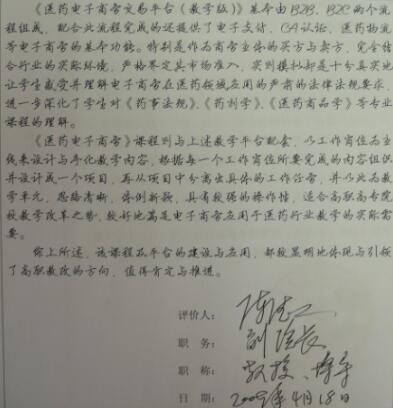 《医药电子商务交易平台（教学版）》基本由B2B、B2C两个流
程组成，配合此流程完成的还提供了电子支付、CA认证、医药物流
等电子商务的基本功能。特别是作为商务主体的买方与卖方，完全结
合行业的实际环境，严格界定其市场准入，实到模拟都是十分真实地
让学生感受并理解电子商务在医药领域应用的严肃的法律法规要求，
进一步深化了学生对《药事法规》、《药剂学》、《医药商品学》等专业
课程的理解。
《医药电子商务》课程则与上述教学平台配套，以工作岗位为主
线来设计与序化教学内容，根据每一个工作岗位所要完成的内容组织
并设计成一个项目，再从项目中分离出具体的工作任务，并以此为教
学单元，思路清晰，体例新颖，具有较强的操作性，适合高职高专院
校教学改革之势，较好地满足电子商务应用于医药行业教学的实际需
要。
综上所述，该课程及平台的建设与应用，都较显明地体现与引领
了高职教改的方向，值得肯定与推进。
评价人：
职 务： 副院长
职 称： 教授、博导
日 期： 2009年4月18日